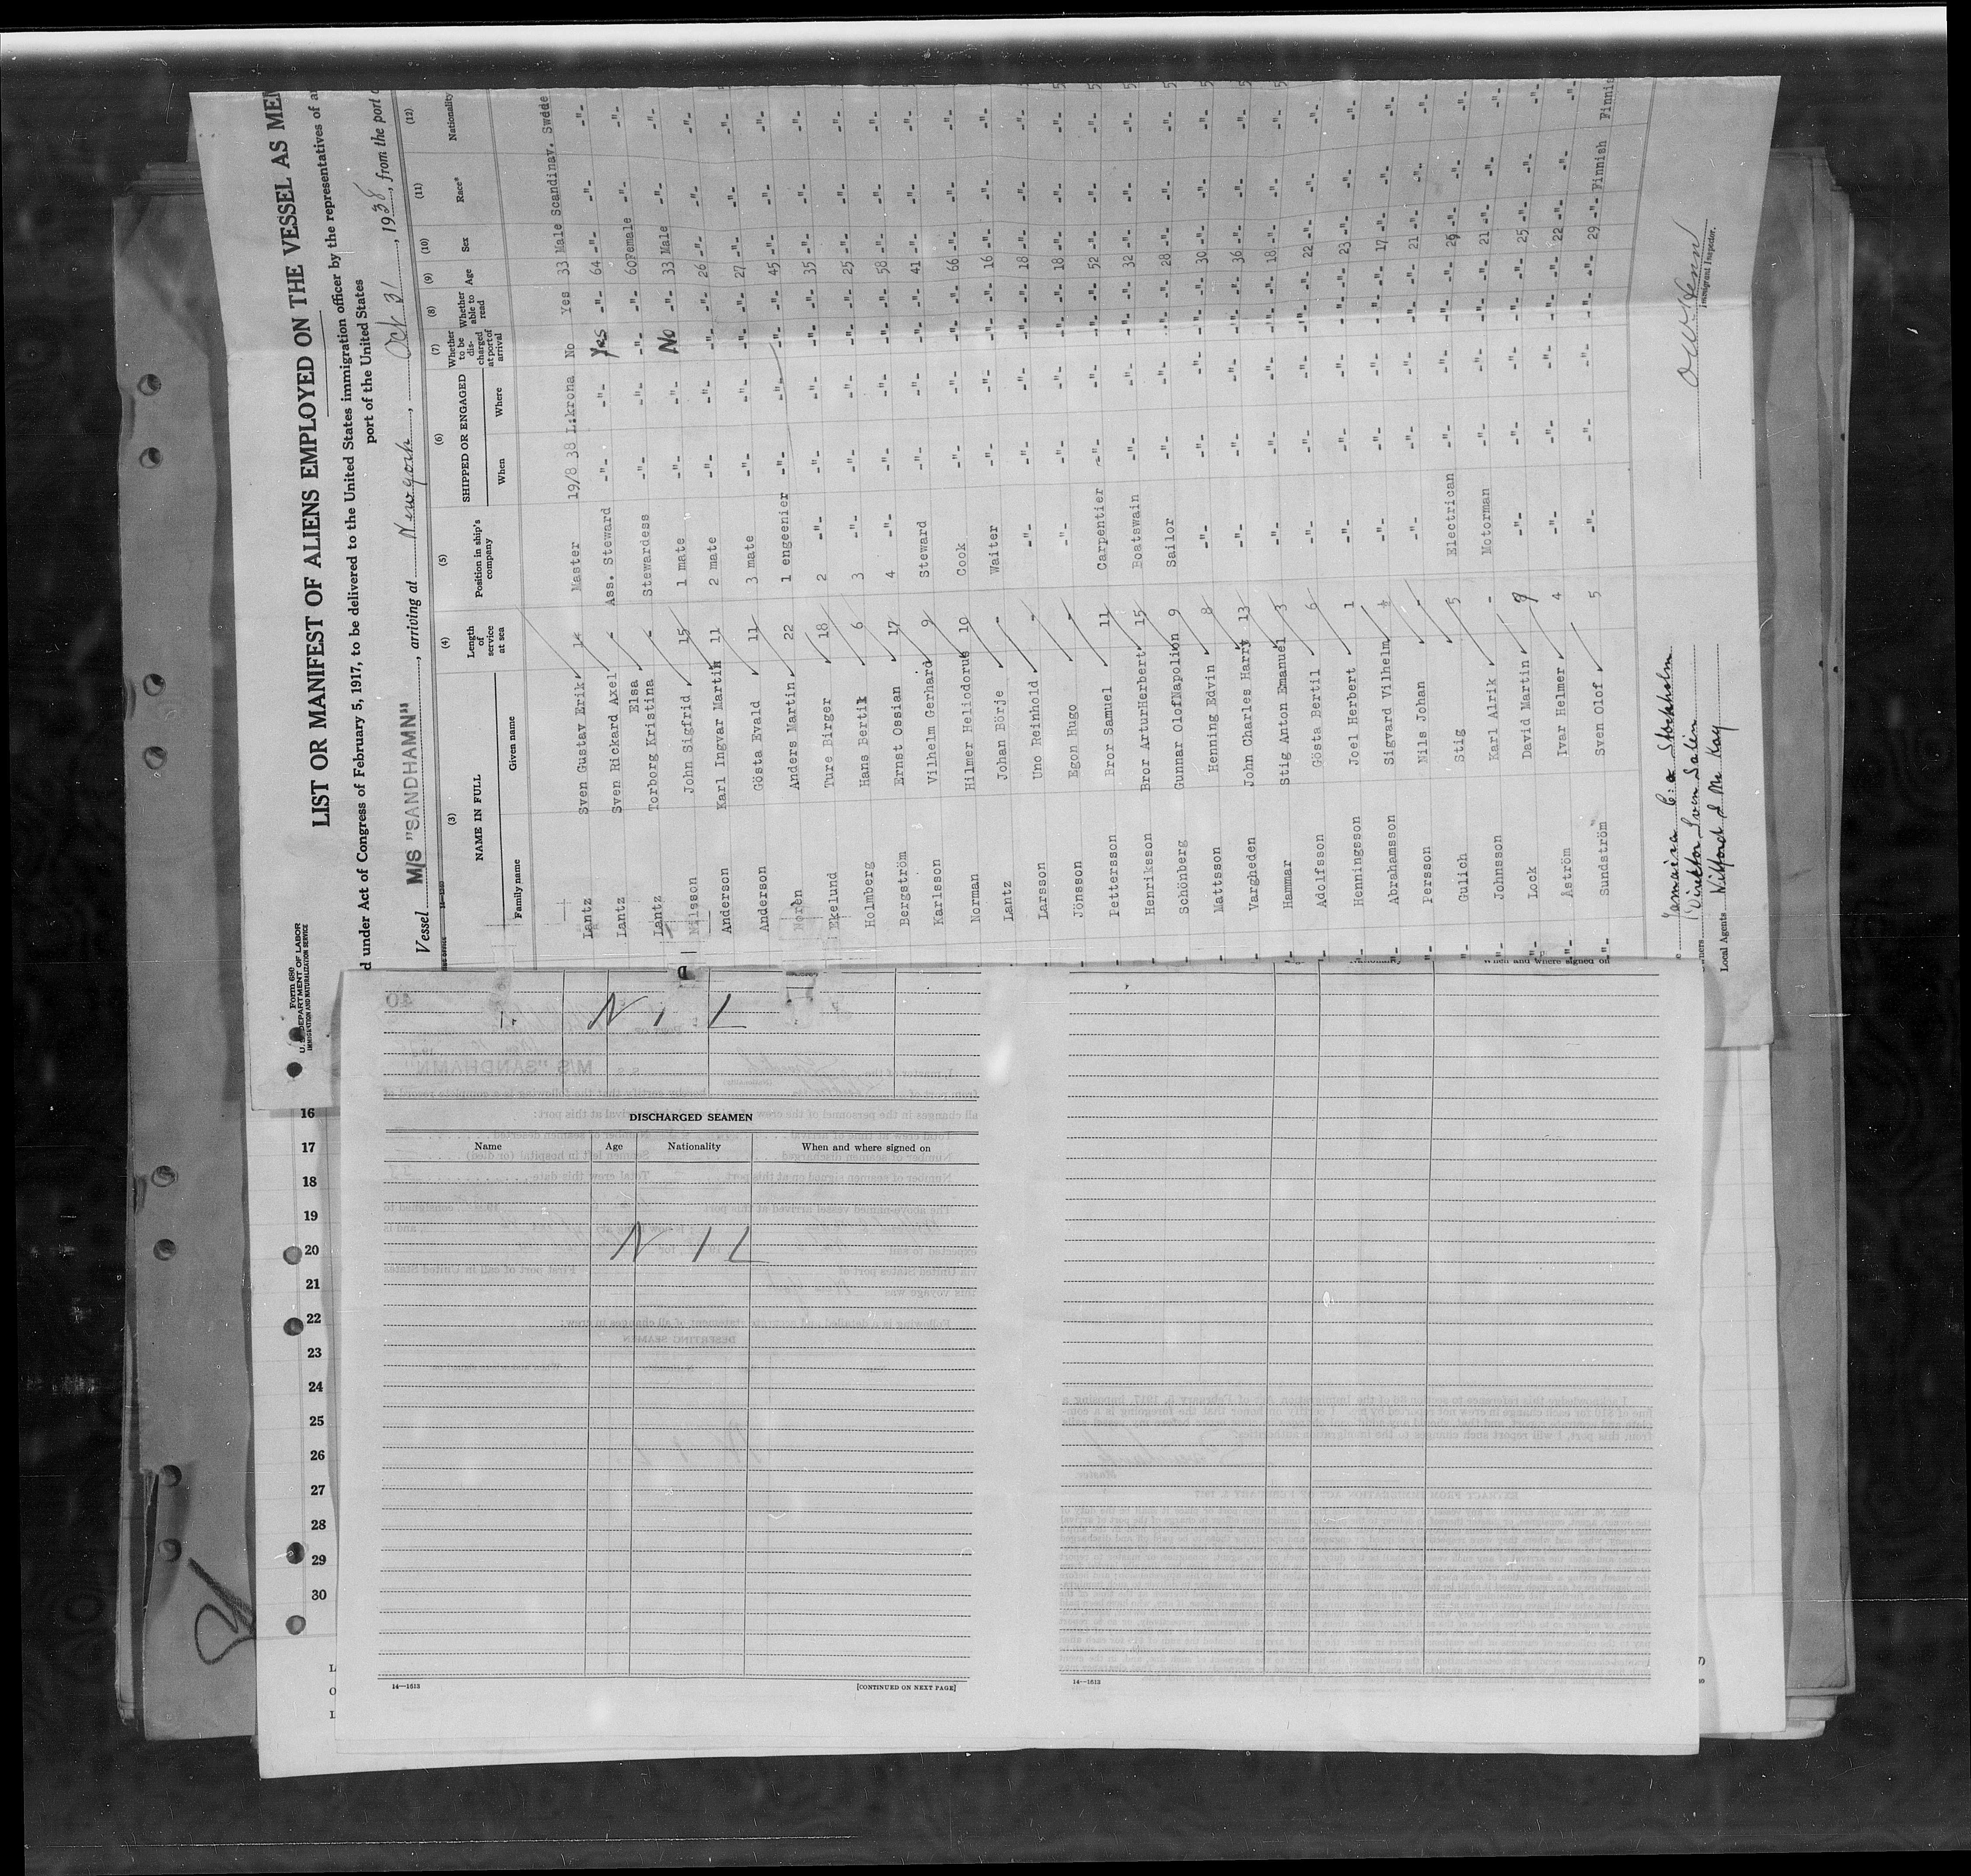 Form 680
U. S. DEPARTMENT OF LABOR
IMMIGRATION AND NATURALIZATION SERVICE
LIST OR MANIFEST OF ALIENS EMPLOYED ON THE VESSEL AS MEM
d under Act of Congress of February 5, 1917, to be delivered to the United States immigration officer by the representatives of a
port of the United States
Vessel M/S "SANDHAMN", arriving at New york, Oct 31, 1938, from the port o
(3) (4) (5) (6) (7) (8) (9) (10) (11) (12)
NAME IN FULL Length of service at sea Position in ship's company SHIPPED OR ENGAGED Whether to be discharged at port of arrival Whether able to read Age Sex Race* Nationality
Family name Given name When Where
Lantz Sven Gustav Erik Master 19/8 38 L:krona No Yes 33 Male Scandinav. Swede
Lantz Sven Rickard Axel - Ass. Steward -"- -"- Yes -"- 64 -"- -"- -"-
Lantz Torborg Kristina Elsa - Stewardess -"- -"- -"- -"- 60 Female -"- -"-
Nilsson John Sigfrid 15 1 mate -"- -"- No -"- 33 Male -"- -"-
Anderson Karl Ingvar Martin 11 2 mate -"- -"- -"- -"- 26 -"- -"- -"-
Anderson Gösta Evald 11 3 mate -"- -"- -"- -"- 27 -"- -"- -"-
Norén Anders Martin 22 1 engeenier -"- -"- -"- -"- 45 -"- -"- -"-
Ekelund Ture Birger 18 2 -"- -"- -"- -"- -"- 35 -"- -"- -"-
Holmberg Hans Bertil 6 3 -"- -"- -"- -"- -"- 25 -"- -"- -"-
Bergström Ernst Ossian 17 4 -"- -"- -"- -"- -"- 58 -"- -"- -"-
Karlsson Vilhelm Gerhard 9 Steward -"- -"- -"- -"- 41 -"- -"- -"-
Norman Hilmer Heliodorus 10 Cook -"- -"- -"- -"- 66 -"- -"- -"-
Lantz Johan Börje - Waiter -"- -"- -"- -"- 16 -"- -"- -"-
Larsson Uno Reinhold - -"- -"- -"- -"- -"- 18 -"- -"- -"-
Jönsson Egon Hugo - -"- -"- -"- -"- -"- 18 -"- -"- -"-
Pettersson Bror Samuel 11 Carpentier -"- -"- -"- -"- 52 -"- -"- -"-
Henriksson Bror ArturHerbert 15 Boatswain -"- -"- -"- -"- 32 -"- -"- -"-
Schönberg Gunnar OlofNapolion 9 Sailor -"- -"- -"- -"- 28 -"- -"- -"-
Mattsson Henning Edvin 8 -"- -"- -"- -"- -"- 30 -"- -"- -"-
Vargheden John Charles Harry 13 -"- -"- -"- -"- -"- 36 -"- -"- -"-
Hammar Stig Anton Emanuel 3 -"- -"- -"- -"- -"- 18 -"- -"- -"-
Adolfsson Gösta Bertil 6 -"- -"- -"- -"- -"- 22 -"- -"- -"-
Henningsson Joel Herbert 1 -"- -"- -"- -"- -"- 23 -"- -"- -"-
Abrahamsson Sigvard Vilhelm ½ -"- -"- -"- -"- -"- 17 -"- -"- -"-
Persson Nils Johan - -"- -"- -"- -"- -"- 21 -"- -"- -"-
Gulich Stig 5 Electrican -"- -"- -"- -"- 25 -"- -"- -"-
Johnsson Karl Alrik - Motorman -"- -"- -"- -"- 21 -"- -"- -"-
Lock David Martin 9 -"- -"- -"- -"- -"- 25 -"- -"- -"-
Åström Ivar Helmer 4 -"- -"- -"- -"- -"- 22 -"- -"- -"-
Sundström Sven Olof 5 -"- -"- -"- -"- -"- 29 -"- Finnish Finnis
Immigrant Inspector.
Stockholm
Direktör Sven Salén
Local Agents Kay
N I L
DISCHARGED SEAMEN
Name Age Nationality When and where signed on
N I L
14—1613
[CONTINUED ON NEXT PAGE]
When and where signed on
14—1613
16
17
18
19
20
21
22
23
24
25
26
27
28
29
30